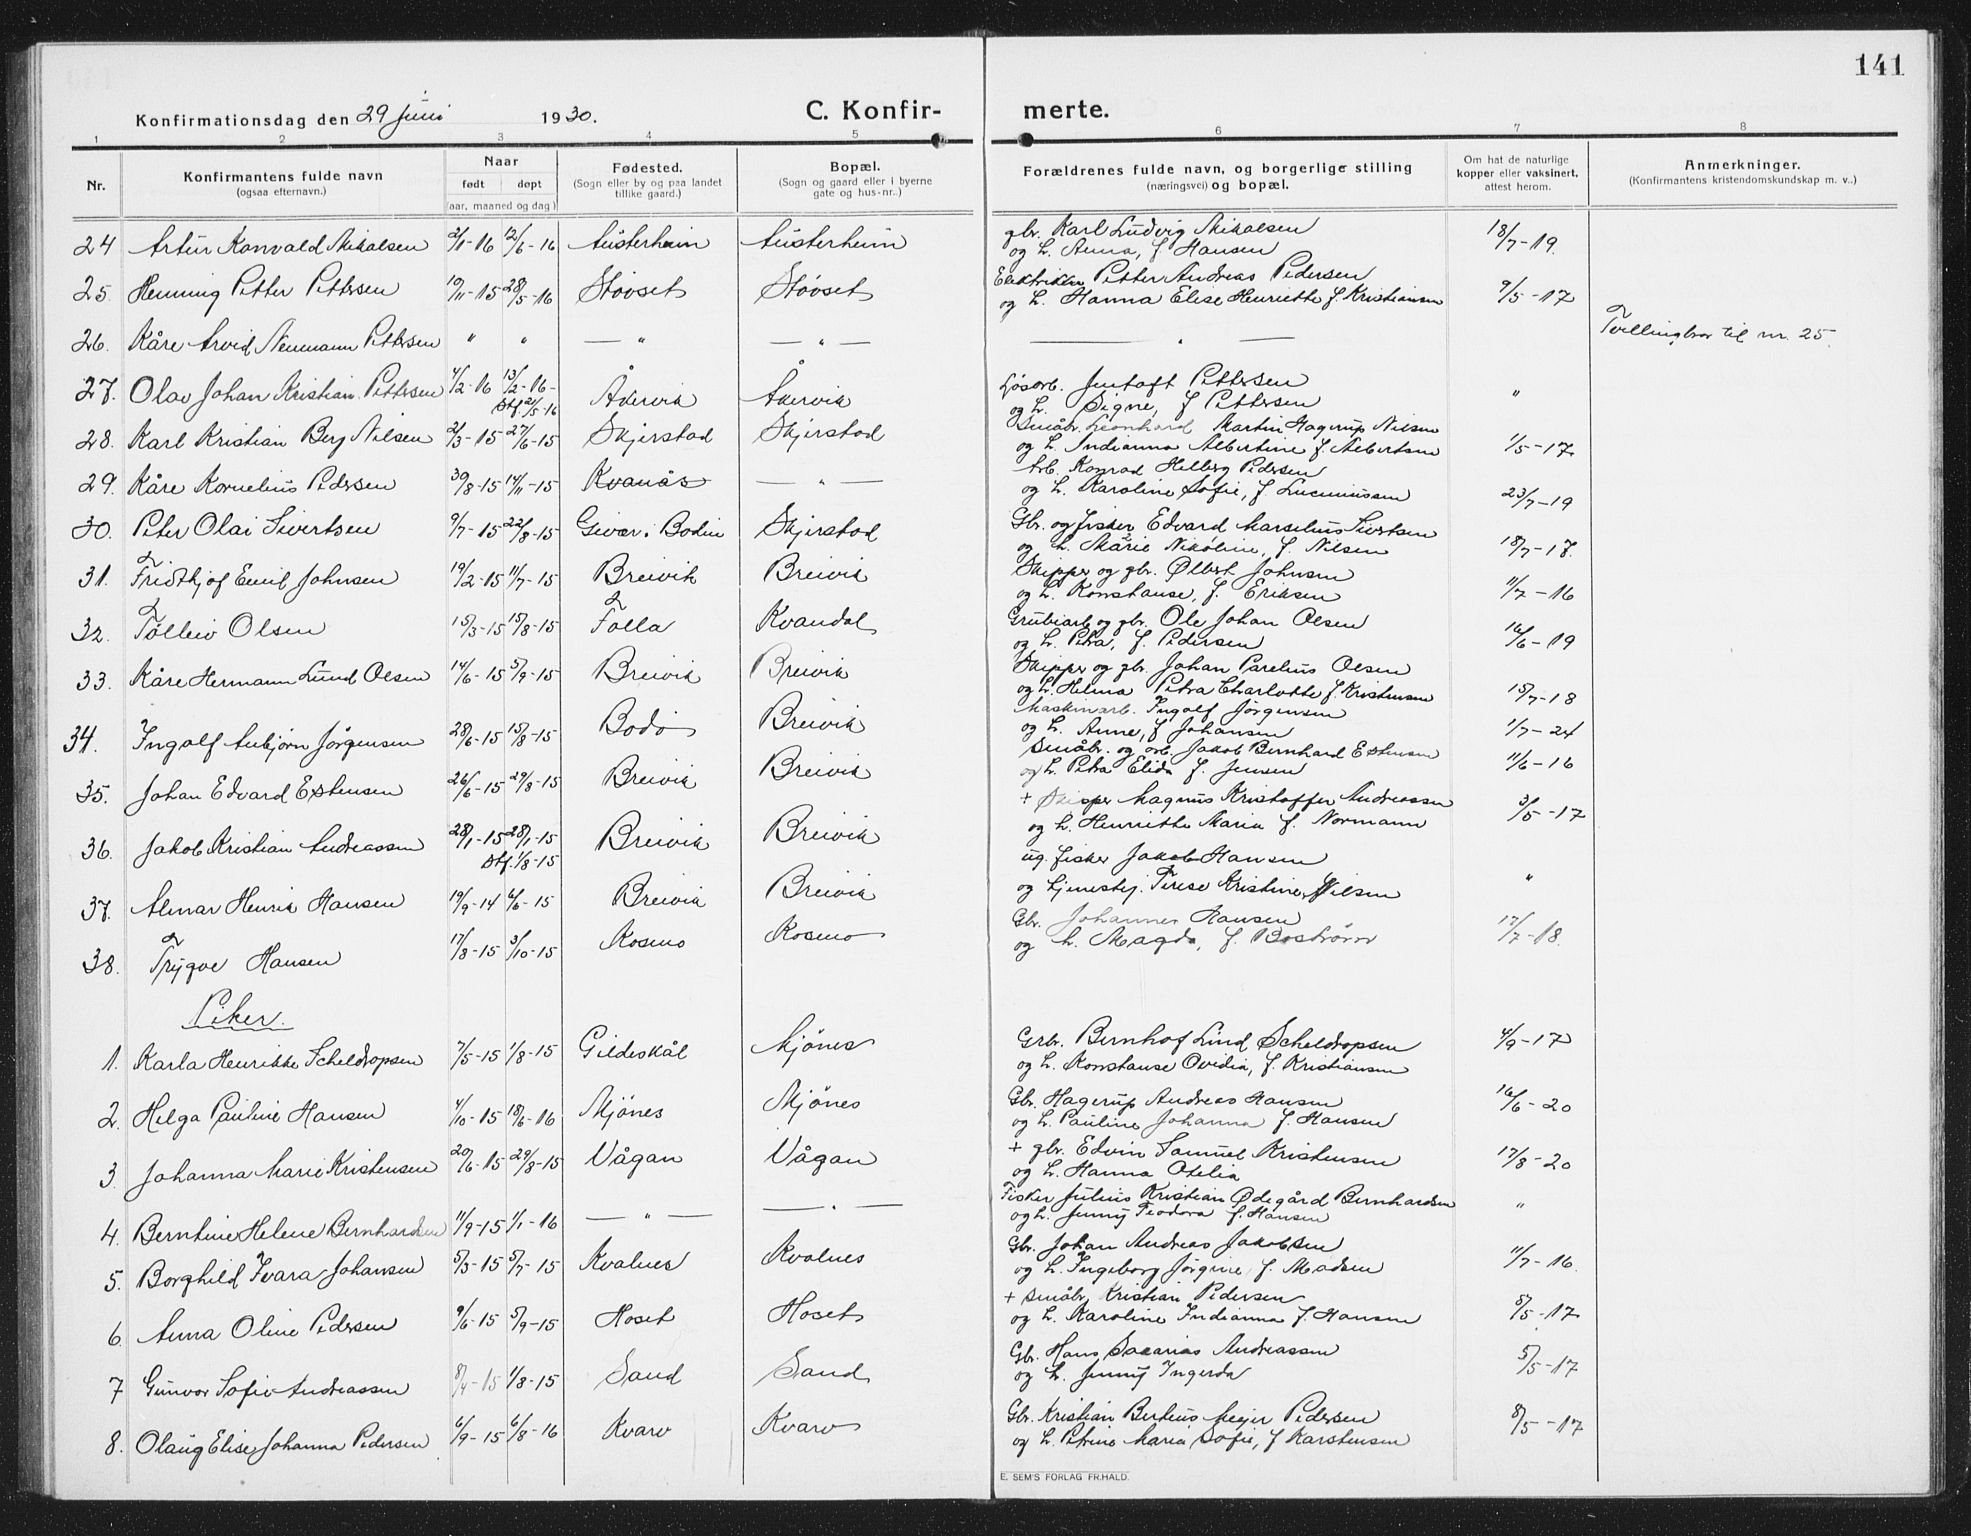 141
Konfirmationsdag den 29 Juni 1930. C. Konfir- merte.
1 2 3 4 5 6 7 8
Nr. Konfirmantens fulde navn (ogsaa efternavn.) Naar født døpt (aar, maaned og dag) Fødested. (Sogn eller by og paa landet tillike gaard.) Bopæl. (Sogn og gaard eller i byerne gate og hus-nr.) Forældrenes fulde navn, og borgerlige stilling (næringsvei) og bopæl. Om hat de naturlige kopper eller vaksinert, attest herom. Anmerkninger. (Konfirmantens kristendomskundskap m. v..)
24 Artur Konvald Mikalsen 2/1-16 12/6-16 Austerheim Austerheim gbr. Karl Ludvig Mikalsen 18/7-19.
og h. Anna, f Hansen
25. Henning Petter Pettersen 19/11-15 28/5-16 Støvset Støvset Elektriker Petter Andreas Pedersen 9/5-17
og h. Hanna Elise Henriette f. Kristiansen
26. Kåre Arvid Neumann Pettersen " " — " — — " — — " — Tvillingbror til nr. 25.
27. Olav Johan Kristian Pettersen 4/2-16 13/2-16- Åkervik Åkervik Løsarb. Jentoft Pettersen "
Stf. 21/5-16 og h. Signe, f Pettersen
28. Karl Kristian Berg Nilsen 2/3-15 27/6-15 Skjerstad Skjerstad Småbr. Leonhard Martin Hagerup Nilsen 1/5-17
og h. Indianna Albertine f. Albertsen
29. Kåre Kornelius Pedersen 30/8-15 14/11-15 Kvanås — " — Arb. Konrad Helberg Pedersen 23/7-19
og h. Karoline Sofie, f
30. Peter Olai Sivertsen 9/7-15 22/8-15 Givær i Bodin Skjerstad Gbr. og fisker Edvard Marselius Sivertsen 18/7-17.
og h. Marie Nikoline, f. Nilsen
31. Fridthjof Emil Johnsen 19/2-15 11/7-15 Breivik Breivik Skipper og gbr. Ølbert Johnsen 11/7-16
og h. Konstanse, f. Eriksen
32. Tølleiv Olsen 15/3-15 15/8-15 Folla Kvandal Grubearb og gbr. Ole Johan Olsen 16/6-19
og h. Petra, f. Pedersen
33. Kåre Hermann Lund Olsen 14/6-15 5/9-15 Breivik Breivik Skipper og gbr. Johan Parelius Olsen 15/7-18
og h. Helma Petra Charlotte f. Kristensen
34. Ingolf Asbjørn Jørgensen 28/6-15 15/8-15 Bodø Breivik Maskinarb. Ingolf Jørgensen 1/7-24
og h. Anne, f Johansen
35. Johan Edvard Estensen 26/6-15 29/8-15 Breivik Breivik Småbr. og arb. Jakob Bernhard Estensen 11/6-16
og h. Petra Elida f. Jensen
36. Jakob Kristian Andreassen 28/1-15 28/1-15 Breivik Breivik + Skipper Magnus Kristoffer Andreassen 3/5-17
Stf. 1/8-15 og h. Henritte Maria f. Normann
37. Almar Henrik Hansen 19/9-14 6/6-15 Breivik Breivik ug. fisker Jakob Hansen "
og tjenestepj. Terese Kristine Nilsen
38. Trygve Hansen 17/8-15 3/10-15 Kosmo Kosmo Gbr. Johannes Hansen 17/7-18.
og h. Magda, f. Bostrøm
Piker.
1. Karla Henrikke Scheldropsen 7/5-15 1/8-15 Gildeskål Mjønes Grbr. Bernhof Lind Scheldropsen 4/9-17
og h. Konstanse Ovidia, f. Kristiansen
2. Helga Pauline Hansen 4/10-15 18/6-16 Mjønes Mjønes Gbr. Hagerup Andreas Hansen 16/6-20
og h. Pauline Johanna f. Hansen
3. Johanna Marie Kristensen 20/6-15 29/8-15 Vågan Vågan + gbr. Edvin Samuel Kristensen 17/8-20
og h. Hanna Otelia
4. Berntine Helene Bernhardsen 11/9-15 1/1-16 — " — — " — Fisker Julius Kristian Ødegård Bernhardsen "
og h. Jenny Teodora f. Hansen
5. Borghild Ivara Johansen 5/3-15 5/7-15 Kvalnes Kvalnes Gbr. Johan Andreas Jakobsen 11/7-16.
og h. Ingeborg Jørgine f. Madsen
6. Anna Oline Pedersen 9/6-15 5/9-15 Hoset Hoset + småbr. Kristian Pedersen 5/5-17
og h. Karoline Indianna f. Hansen
7 Gunvor Sofie Andreassen 8/4-15 1/8-15 Sand Sand Gbr. Hans Sakarias Andreassen 5/5-17
og h. Jenny Ingerda
8. Olaug Elise Johanna Pedersen 6/9-15 6/8-16 Kvarv Kvarv Gbr. Kristian Berteus Meyer Pedersen 8/5-17
og h. Petrine Maria Sofie, f Karstensen
E. SEM'S FORLAG FR.HALD.